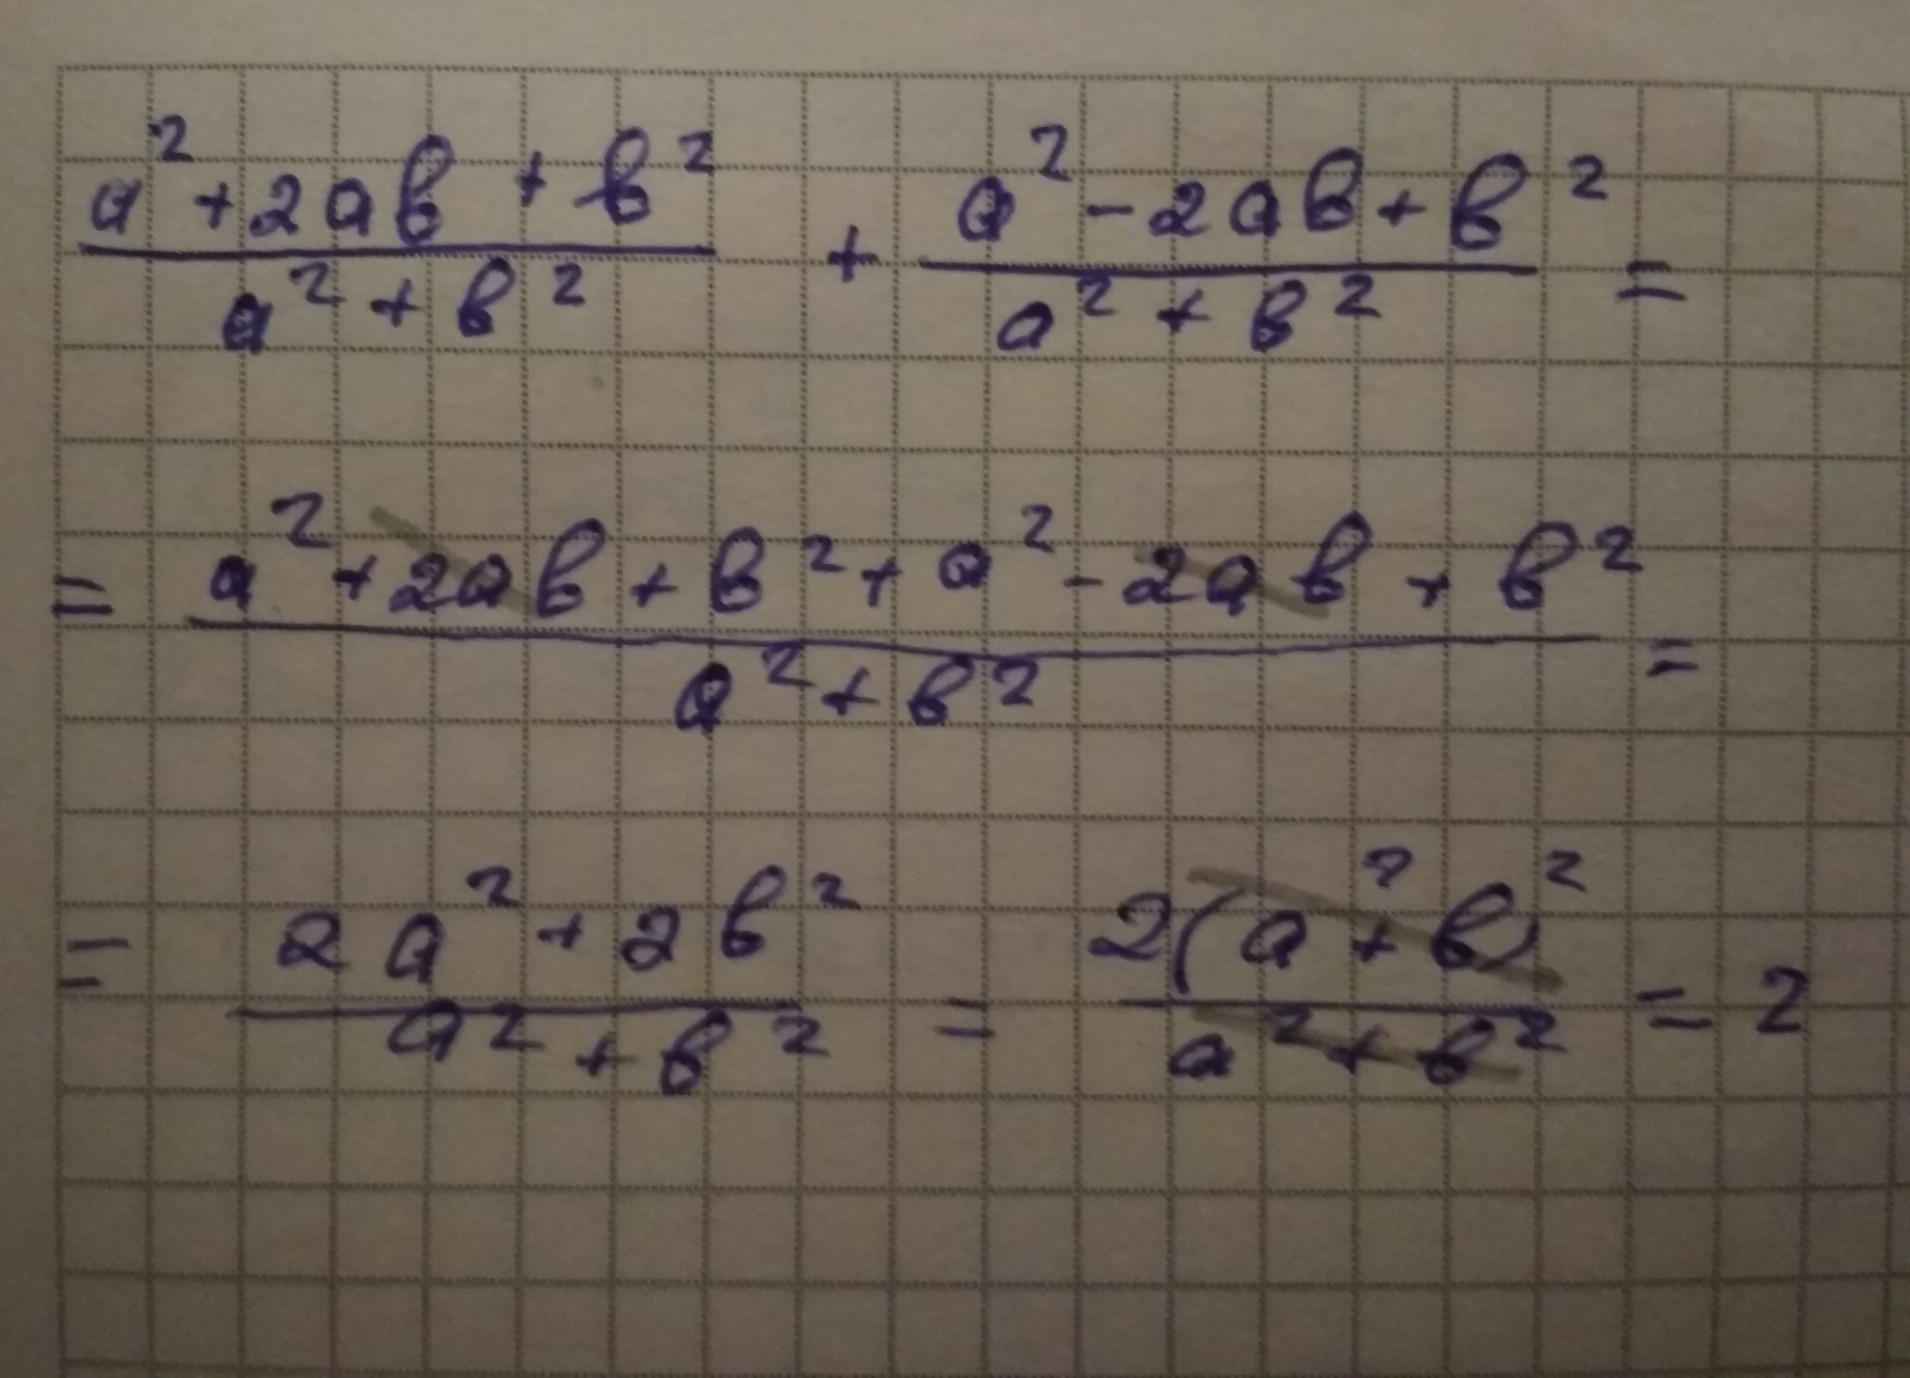 (a² + 2ab + b²)/(a² + b²) + (a² - 2ab + b²)/(a² + b²) =
= (a² + 2ab + b² + a² - 2ab + b²)/(a² + b²) =
= (2a² + 2b²)/(a² + b²) = 2(a² + b)²/(a² + b²) = 2